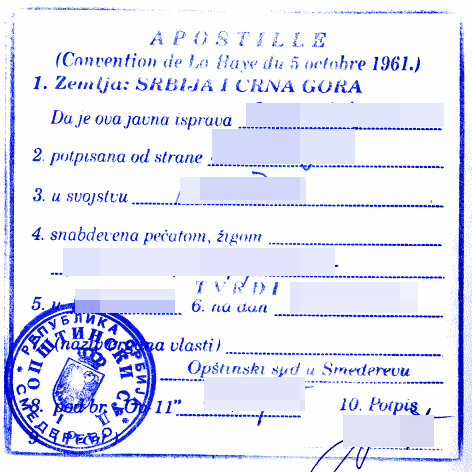 APOSTILLE
(Convention de La Haye du 5 octobre 1961.)
1. Zemlja: SRBIJA I CRNA GORA
Da je ova javna isprava
2. potpisana od strane
3. u svojstvu
4. snabdevena pečatom, žigom
TVRDI
5. u 6. na dan
7. (naziv na vlasti)
Opštinski sud u Smederevu
8. pod br. "Ov-11" 10. Potpis
9.
РЕПУБЛИКА СРБИЈА
ОПШТИНСКИ
СМЕДЕРЕВО